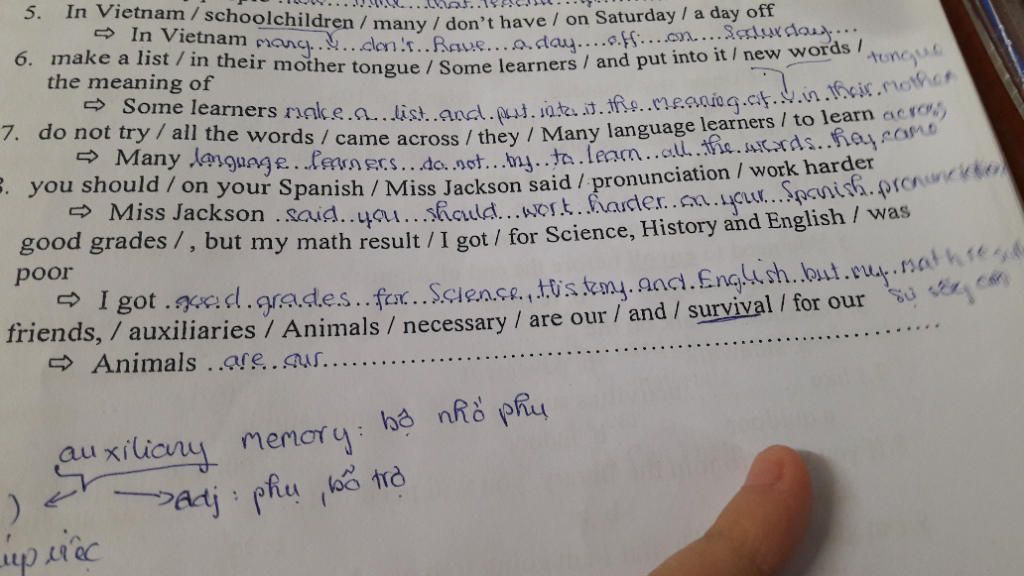 5. In Vietnam / schoolchildren / many / don't have / on Saturday / a day off
⇨ In Vietnam many ... don't have a day off on Saturday
6. make a list / in their mother tongue / Some learners / and put into it / new words /
tongue
the meaning of
⇨ Some learners make a list and put into it the meaning of in their mother
7. do not try / all the words / came across / they / Many language learners / to learn across
⇨ Many language learners do not try to learn all the words they came
you should / on your Spanish / Miss Jackson said / pronunciation / work harder
⇨ Miss Jackson said you should work harder on your Spanish pronunciation
good grades / , but my math result / I got / for Science, History and English / was
poor
⇨ I got good grades for Science, History and English but my math
sự sống còn
friends, / auxiliaries / Animals / necessary / are our / and / survival / for our
⇨ Animals are our
auxiliary memory: bộ nhớ phụ
) → adj: phụ, bổ trợ
việc